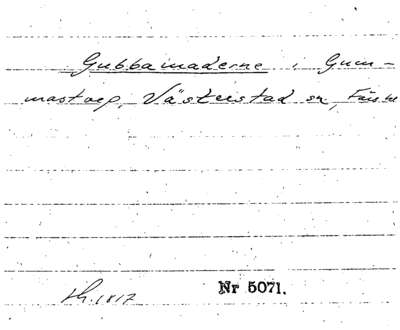 Gubbamaderne i Gum-
mastorp, Västerstad sn, Färs hd
Sk. 1817 Nr 5071.